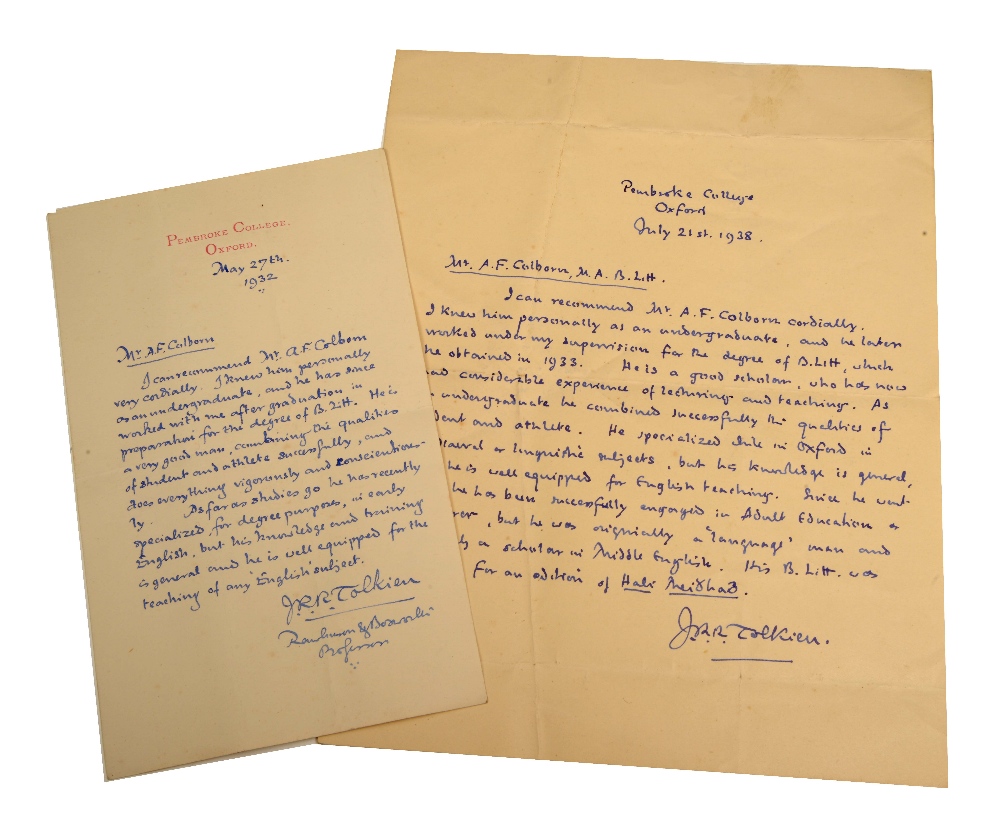 PEMBROKE COLLEGE.
OXFORD.
May 27th.
1932
Mr. A.F. Colborn
I can recommend Mr. A.F. Colborn
very cordially. I knew him personally
as an undergraduate, and he has since
worked with me after graduation in
preparation for the degree of B. Litt. He is
a very good man, combining the qualities
of student and athlete successfully, and
does everything vigorously and conscientious-
ly. As far as studies go he has recently
specialized, for degree purposes, in early
English, but his knowledge and training
is general and he is well equipped for the
teaching of any 'English' subject.
J.R.R. Tolkien
Rawlinson & Bosworth
Professor
Pembroke College
Oxford
July 21st. 1938.
Mr. A.F. Colborn, M.A. B.Litt.
I can recommend Mr. A.F. Colborn cordially.
I knew him personally as an undergraduate, and he later
worked under my supervision for the degree of B.Litt, which
he obtained in 1933. He is a good scholar, who has now
had considerable experience of lecturing and teaching. As
undergraduate he combined successfully the qualities of
dent and athlete. He specialized in Oxford in
subjects, but his knowledge is general,
he is well equipped for English teaching. Since he went
he has been successfully engaged in Adult Education
, but he was originally a 'language' man and
a scholar in Middle English. His B. Litt. was
for an edition of Hali Meiðhad.
J.R.R. Tolkien.